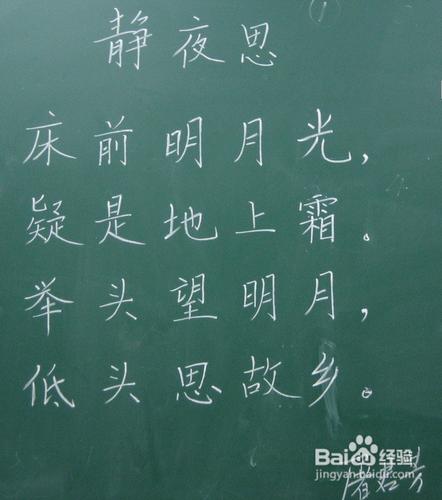 ①
静夜思
床前明月光,
疑是地上霜。
举头望明月,
低头思故乡。
Bai du 经验
jingyan.baidu.com